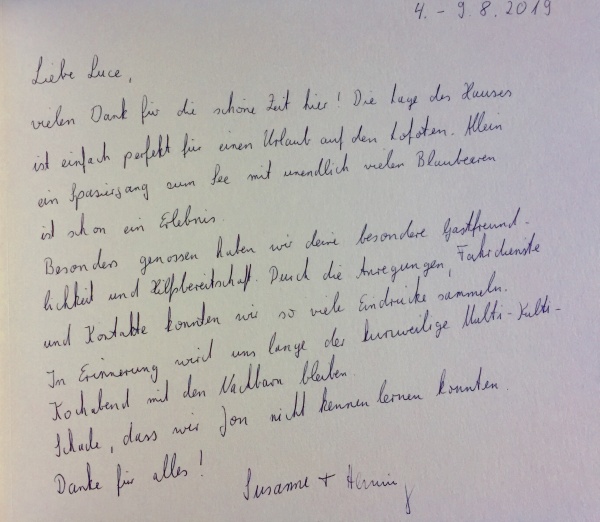 4. - 9.8.2019
Liebe Luce,
vielen Dank für die schöne Zeit hier! Die Lage des Hauses
ist einfach perfekt für einen Urlaub auf den Lofoten. Allein
ein Spaziergang zum See mit unendlich vielen Blaubeeren
ist schon ein Erlebnis.
Besonders genossen haben wir deine besondere Gastfreund-
lichkeit und Hilfsbereitschaft. Durch die Anregungen, Fahrdienste
und Kontakte konnten wir so viele Eindrücke sammeln.
In Erinnerung wird uns lange der kurzweilige Multi-Kulti-
Kochabend mit den Nachbarn bleiben.
Schade, dass wir Jon nicht kennen lernen konnten.
Danke für alles!
Susanne + Henning